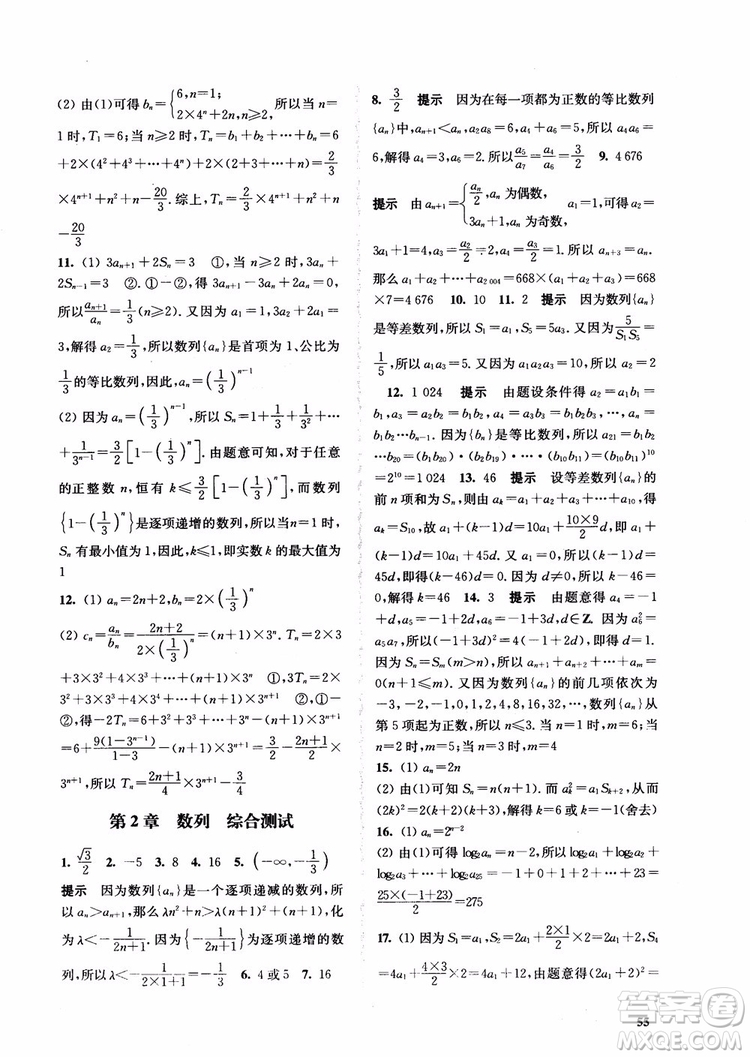 (2) 由(1)可得 bₙ={6,n=1; 2×4ⁿ+2n,n≥2, 所以当 n=
1 时, T₁=6;当 n≥2 时, Tₙ=b₁+b₂+…+bₙ=6
+2×(4²+4³+…+4ⁿ)+2×(2+3+…+n)=2/3
×4ⁿ⁺¹+n²+n-20/3.综上, Tₙ=2/3×4ⁿ⁺¹+n²+n
-20/3
11. (1) 3aₙ₊₁+2Sₙ=3 ①,当 n≥2 时,3aₙ+
2Sₙ₋₁=3 ②.由①-②,得 3aₙ₊₁-3aₙ+2aₙ=0,
所以aₙ₊₁/aₙ=1/3(n≥2).又因为 a₁=1,3a₂+2a₁=
3,解得 a₂=1/3,所以数列{aₙ}是首项为1,公比为
1/3的等比数列,因此,aₙ=(1/3)ⁿ⁻¹
(2) 因为 aₙ=(1/3)ⁿ⁻¹,所以 Sₙ=1+1/3+…
+1/3ⁿ⁻¹=3/2[1-(1/3)ⁿ].由题意可知,对于任意
的正整数 n,恒有 k≤3/2[1-(1/3)ⁿ].而数列
{1-(1/3)ⁿ}是逐项递增的数列,所以当 n=1 时,
Sₙ 有最小值为 1,因此,k≤1,即实数 k 的最大值为
1
12. (1) aₙ=2n+2,bₙ=2×(1/3)ⁿ
(2) cₙ=aₙ/bₙ=(2n+2)/(2×(1/3)ⁿ)=(n+1)×3ⁿ, Tₙ=2×3
+3×3²+4×3³+…+(n+1)×3ⁿ ①,3Tₙ=2×3²
+3×3³+4×3⁴+…+(n+1)×3ⁿ⁺¹ ②.由①-
②,得-2Tₙ=2×3+3²+3³+…+3ⁿ-(n+1)×3ⁿ⁺¹
=6+9(1-3ⁿ⁻¹)/(1-3)-(n+1)×3ⁿ⁺¹=3/2-(2n+1)/2×
3ⁿ⁺¹,所以 Tₙ=(2n+1)/4×3ⁿ⁺¹-3/4
第 2 章 数列 综合测试
1. √3/2 2. -5 3. 8 4. 16 5. (-∞,-1/3)
提示 因为数列{aₙ}是一个逐项递减的数列,所以
由 aₙ>aₙ₊₁,那么 λn²+n>λ(n+1)²+(n+1),化
为 λ<-1/(2n+1).因为{-1/(2n+1)}为逐项递增的数
列,所以 λ<-1/(2×1+1) 6. 4或5 7. 16
8. 3/2 提示 因为在每一项都为正数的等比数列
{aₙ}中,aₙ₊₁<aₙ,a₂a₈=6,a₄+a₆=5,所以 a₄a₆
=6,解得 a₄=3,a₆=2.所以a₅/a₇=a₄/a₆=3/2 9. 4 676
提示 由 aₙ₊₁={aₙ/2,aₙ 为偶数, 3aₙ+1,aₙ 为奇数, a₁=1,可得 a₂=
3a₁+1=4,a₃=a₂/2=2,a₄=a₃/2=1.所以 aₙ₊₃=aₙ.
那么 a₁+a₂+…+a₂₀₀₄=668×(a₁+a₂+a₃)=668
×7=4 676 10. 10 11. 2 提示 因为数列{aₙ}
是等差数列,所以 S₁=a₁,S₅=5a₃.又因为5/(S₁S₅)=
1/5,所以 a₁a₃=5.又因为 a₁+a₃=6,所以 a₂=2
12. 1 024 提示 由题设条件得 a₂=b₁a₁=
b₁,a₃=a₂b₂=b₁b₂,a₄=a₃b₃=b₁b₂b₃,…,aₙ=b₁
b₂…bₙ₋₁.因为{bₙ}是等比数列,所以a₂₁=b₁b₂
…b₂₀=(b₁b₂₀)·(b₂b₁₉)·…·(b₁₀b₁₁)=(b₁₀b₁₁)¹⁰
=2¹⁰=1 024 13. 46 提示 设等差数列{aₙ}的
前 n 项和为Sₙ,则由 aₖ=a₁+a₂+a₃+…+a₁₀,得
aₖ=S₁₀,故 a₁+(k-1)d=10a₁+(10×9)/2 d,即 a₁+
(k-1)d=10a₁+45d.又因为 a₁=d,所以 d+
(k-1)d=10d+45d,即 1+(k-1)=10+45,所以
(k-46)=9.…k=46 14. 3 提示 由题意得 a₄=-1
+d,a₅=-1+2d,a₆=-1+3d,d∈Z.因为 a₆²=
a₅a₇,所以(-1+3d)²=(-1+2d)(1+4d),得 d=1.
因为 Sₙ=Sₘ(m>n),所以 aₙ₊₁+aₙ₊₂+…+aₘ=0,即
n+1≤m.又因为数列{aₙ}的前几项依次为
-3,-2,-1,0,1,2,4,8,16,32,…,所以数列{aₙ}从
第 5 项起为正数,所以 n≤3.当 n=3 时,m=4;当
n=2 时,m=5
15. (1) aₙ=2n
(2) 由(1)可得 Sₙ=n(n+1).而 aₖ²=a₁Sₖ₊₂,从而
(2k)²=2(k+2)(k+3),所以 k=6 或 k=-1(舍去)
16. (1) aₙ=2ⁿ⁻²
(2) 由(1)得 log₂aₙ=n-2,所以log₂a₁+log₂a₂+
log₂a₃+…+log₂a₂₅=-1+0+1+2+…+23=
25×(-1+23)/2=275
17. (1) 因为 S₁=a₁,S₂=2a₁+(2×1)/2×2=2a₁+2,S₄
=4a₁+(4×3)/2×2=4a₁+12,所以由题意得(2a₁+
55
答案圈
MXQE.COM